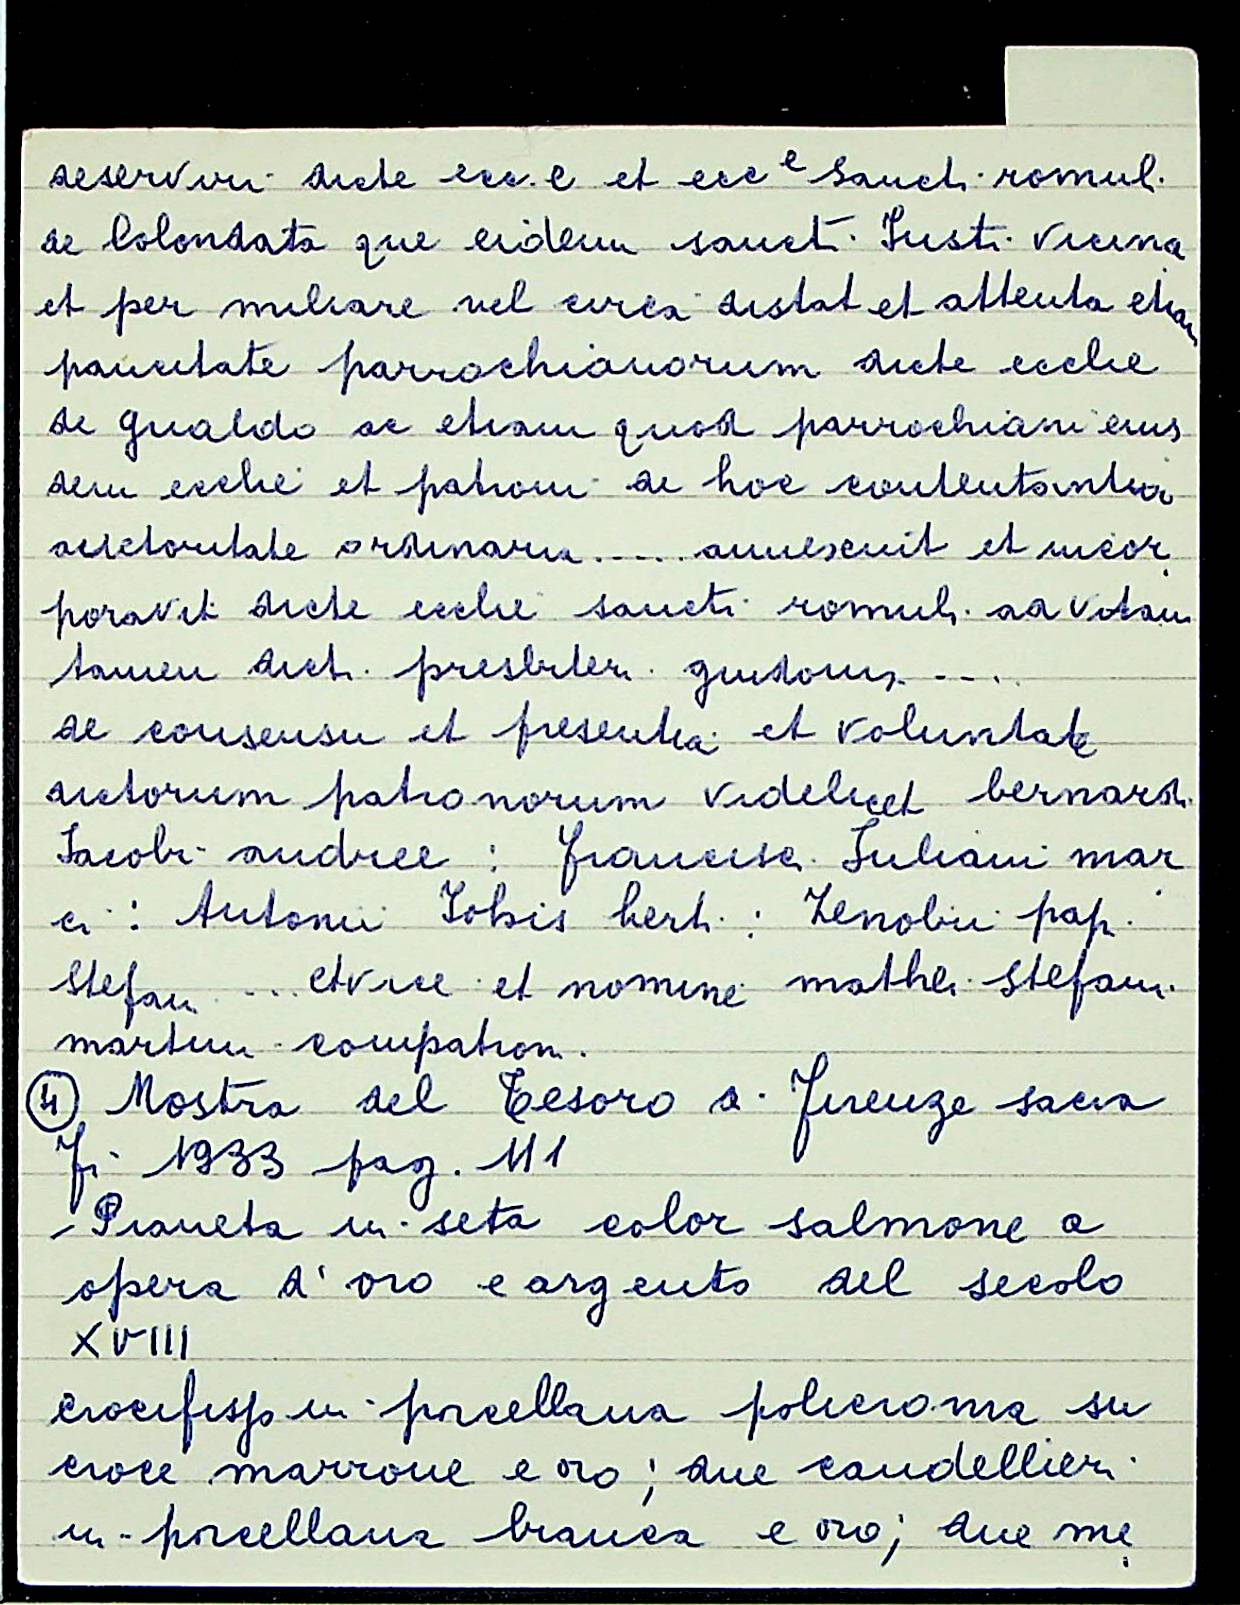 deserviri dicte ecc.e et ecc e Sancti romuli
de Colondata que eidem sancti Justi vicina
et per miliare vel circa distat et attenta etiam
paucitate parrochianorum dicte ecclie
de gualdo ac etiam quod parrochiani eius
dem ecclie et patroni de hoc contentantur
auctoritate ordinaria..... annexuit et incor
poravit dicte ecclie sancti romuli ad vitam
tamen dicti presbiteri guidonis ....
de consensu et presentia et voluntate
dictorum patronorum videlicet bernardi
Jacobi andree : francisci Juliani mar
ci : Antonii Johis berti : Zenobii pap.
stefani ... et vice et nomine mathei stefani
martini compatroni.
④ Mostra del Tesoro di Firenze sacra
Fi 1933 pag. 111
- Pianeta in seta color salmone a
opera d' oro e argento del secolo
XVIII
crocifisso in porcellana policroma su
croce marrone e oro ; due candellieri
in porcellana bianca e oro ; due me